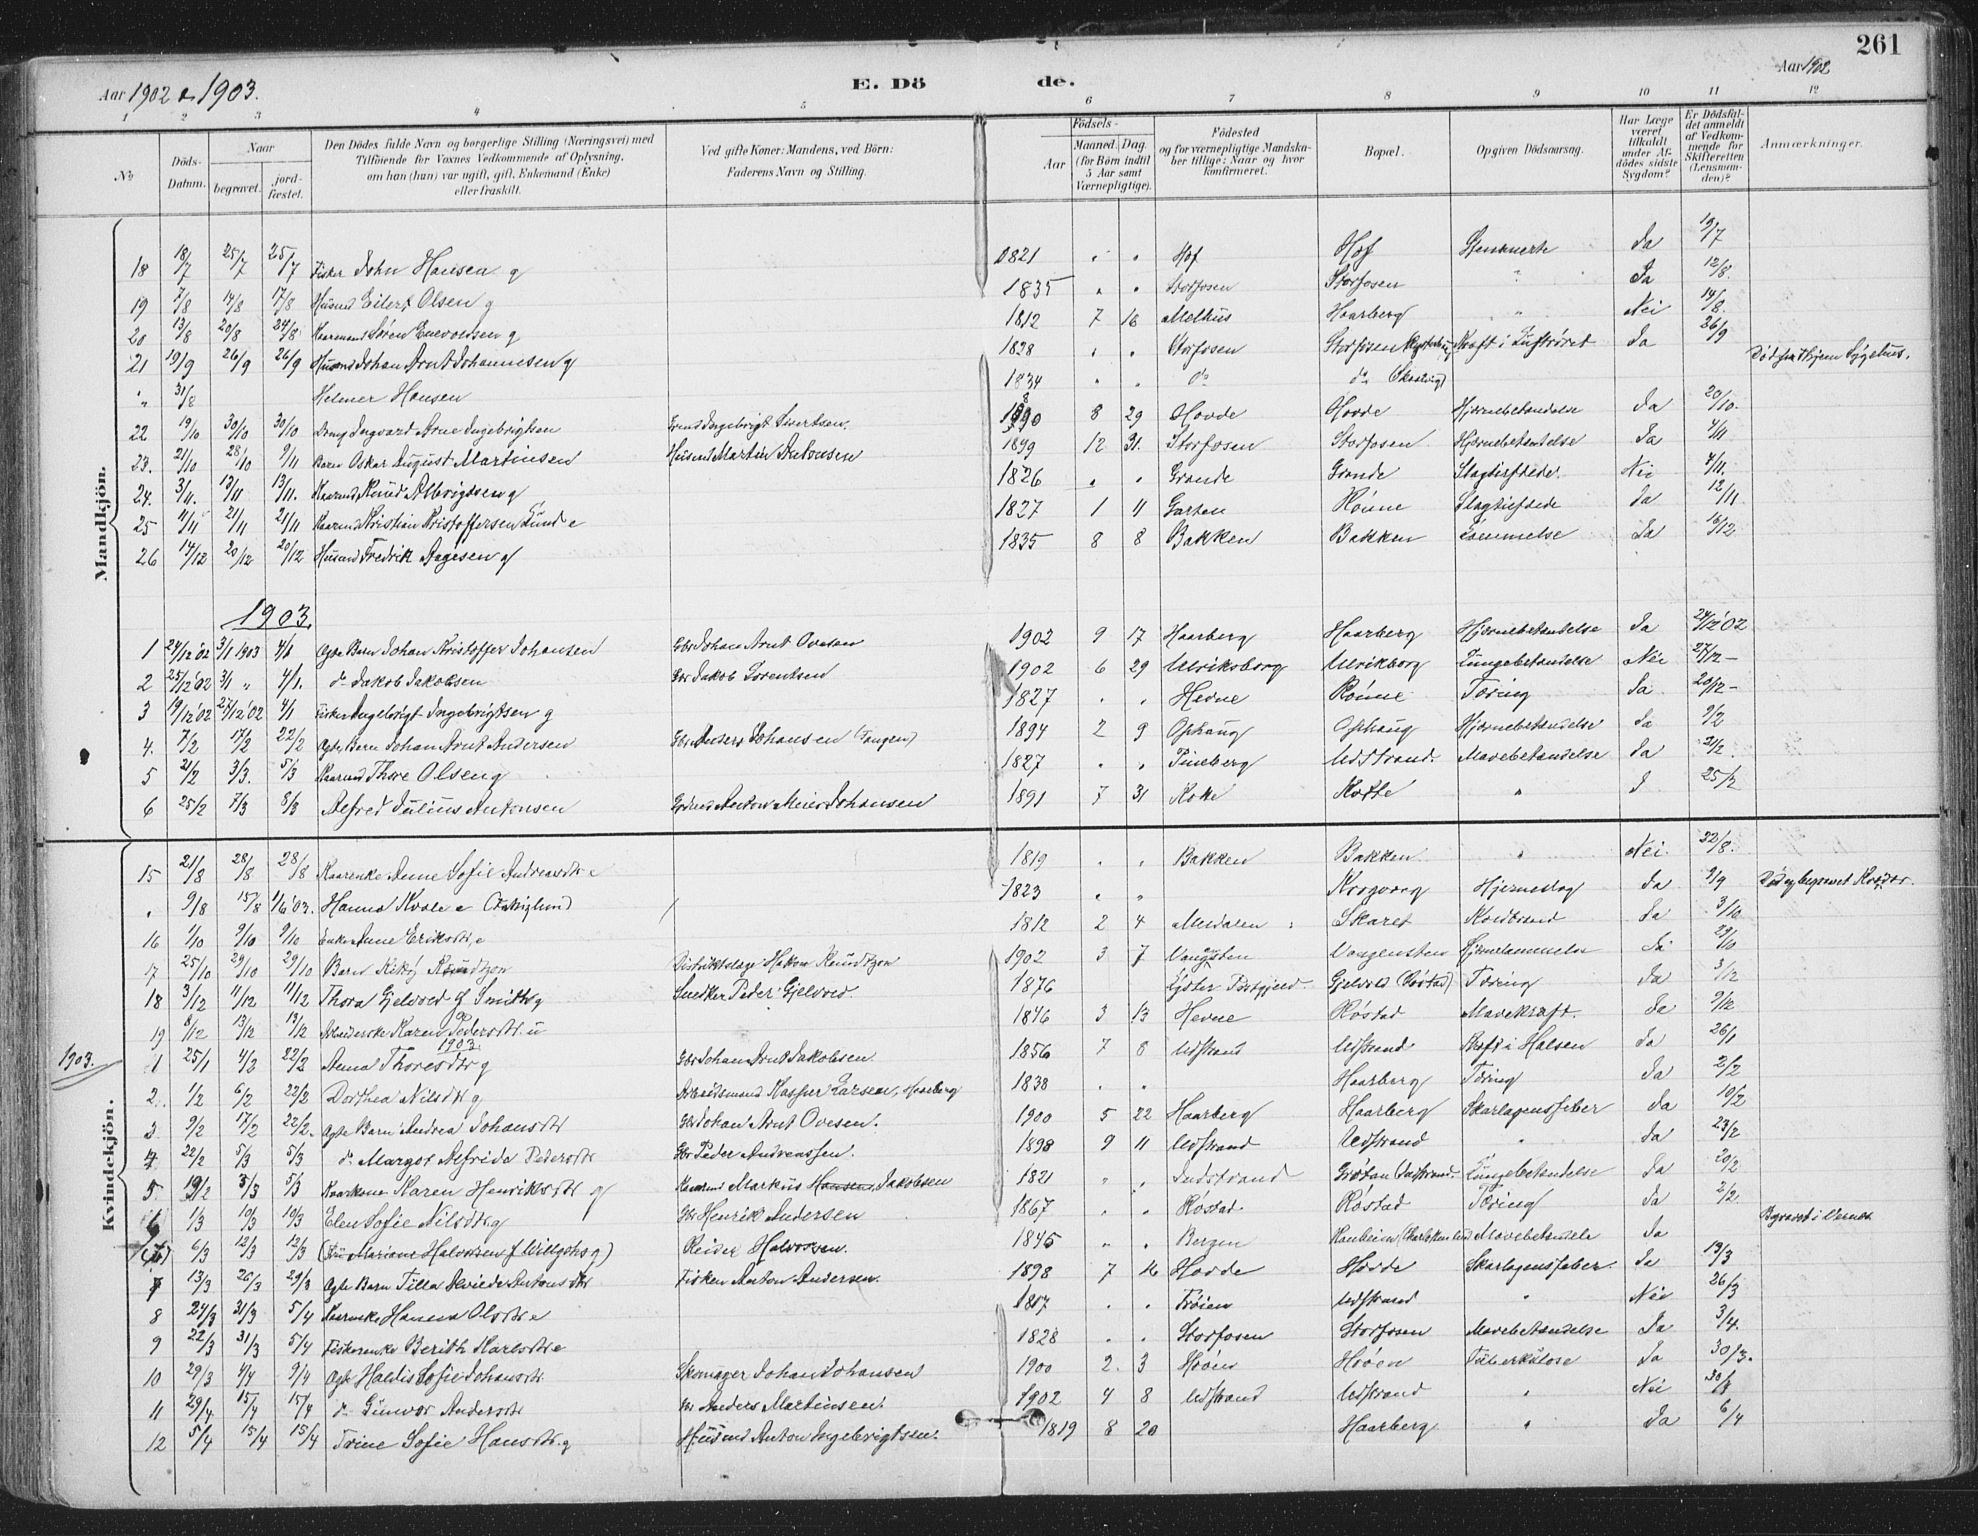 261
Aar 1902 & 1903.
E. Dö de.
Aar 1902
1 2 3 4 5 6 7 8 9 10 11 12
No
Döds-Datum.
Naar
begravet.
jord-fæstet.
Den Dödes fulde Navn og borgerlige Stilling (Næringsvei) med
Tilföiende for Voxnes Vedkommende af Oplysning,
om han (hun) var ugift, gift, Enkemand (Enke)
eller fraskilt.
Ved gifte Koner: Mandens, ved Börn:
Faderens Navn og Stilling.
Födsels-
Aar
Maaned. Dag.
(for Börn indtil
5 Aar samt
Værnepligtige).
Födested
og for værnepligtige Mandska-
ber tillige: Naar og hvor
konfirmeret.
Bopæl.
Opgiven Dödsaarsag.
Har Læge
været
tilkaldt
under Af-
dödes sidste
Sygdom?
Er Dödsfal-
det anmeldt
af Vedkom-
mende for
Skifteretten
(Lensman-
den)?
Anmærkninger.
Mandkjön.
18 18/7 25/7 25/7 Fisker John Hansen g 1821 " " Hof Hof Ja 19/7
19 7/8 14/8 17/8 Husmd Eilert Olsen g 1835 " " Storfosen Storfosen " Ja 12/8
20 13/8 20/8 24/8 Kaarmand Søren Enevoldsen g 1812 7 16 Melhus Haarberg " Nei 14/8
21 19/9 26/9 26/9 Husmd Johan Arnt Johannesen g 1828 " " Storfosen Storfosen Kræft i Luftrøret Ja 26/9
" 31/8 Helmer Hansen 1834 " " do do
22 19/10 30/10 30/10 Ingvard Arne Ingebrigtsen Ingebrigt Sivertsen. 1890 8 29 Hovde Hovde Hjernebetændelse Ja 20/10
23. 21/10 28/10 9/11 Barn Oskar August Martinsen Husmd Martin Antonsen 1899 12 31. Storfosen Storfosen Hjernebetændelse Ja 4/11
24. 3/11. 13/11 13/11. Kaarmd Knud Albrigtsen g 1826 " " Grande Grande Slagtilfælde. Nei 4/11.
25 11/11 21/11 21/11 Kaarmd Kristian Kristoffersen Lund e 1827 1 11 Garten Rønne Slagtilfælde Ja 12/11
26 14/12 20/12 20/12 Husmd Fredrik Aagesen g 1835 8 8 Bakken Bakken Ja 16/12
1903.
1 24/12'02 3/1 1903 4/1 Ægte Barn Johan Kristoffer Johansen Gbr Johan Arnt Ovesen 1902 9 17 Haarberg Haarberg Hjernebetændelse Ja 24/12'02
2 25/12'02 3/1 " 4/1. do Jakob Jakobsen Gbr Jakob Lorentsen 1902 6 29 Ulriksborg Ulrikborg Lungebetændelse Nei 27/12 –
3 19/12'02 27/12'02 4/1 Fisker Ingebrigt Ingebrigtsen g 1827 " " Hevne Rønne Tæring Ja 20/12 –
4. 7/2 17/2 22/2 Ægte Barn Johan Arnt Andersen Gbr Anders Johansen (Tangen) 1894 2 9 Ophaug Ophaug Hjernebetændelse Ja 9/2
5 21/2 3/3. 5/3 Kaarmd Thore Olsen g 1827 " " Udstrand. Mavebetændelse Ja 21/2.
6 25/2 7/3 8/3 Alfred Julius Antonsen Anton Meier Johansen 1891 7 31 Kotte " J 25/2
Kvindekjön.
15 21/8 28/8 28/8 Kaarenke Anne Sofie Andreasdtr e 1819 " " Bakken Bakken " Nei 22/8.
" 9/8 15/8 11/6'03. Hanna Kvale e 1823 " " Hjerneslag Ja
16 1/10 9/10 9/10 Enke Anne Eriksdtr e 1812 2 4 Skaret Koldbrand Ja 3/10
17 25/10 29/10 29/10 Barn Knudtzon Distriktslæge Hakon Knudtzon 1902 3 7 Vongsten Ja 29/10
18 3/12 11/12 11/12 Thora Gjelvold f Smith g Snedker Peder Gjelvold. 1876 Gjelvold (Røstad) Tæring Ja 3/12
19 8/12 13/12 13/12 Karen Pedersdtr u 1846 3 13 Hevne Røstad Mavekræft. Ja 9/12
1903.
1903
1 25/1 4/2 22/2 Anna Thoresdtr g Gbr Johan Arnt Jakobsen 1856 7 8 Udstrand Udstrand Kræft i Halsen Ja 26/1
2. 1/2 6/2 22/2 Dorthea Nilsdtr g Arbeidsmand Kasper Larsen, Haarberg 1838 " " Haarberg Tæring Ja 2/2
3 9/2 17/2 22/2. Ægte Barn Andrea Johansdtr Gbr Johan Arnt Ovesen. 1900 5 22 Haarberg Haarberg Skarlagensfeber Ja 10/2
4 22/2 5/3 5/3 do Margot Alfride Pedersdtr Gbr Peder Andreassen. 1898 9 11 Udstrand Udstrand " Ja 23/2
5. 19/2 3/3 5/3 Karen Henriksdtr g Kaarmd Markus Hansen Jakobsen 1821 " " Indstrand Lungebetændelse Ja 20/2
6 1/3 10/3 10/3 Elen Sofie Nilsdtr g Gbr Henrik Andersen 1867 " " Røstad. Røstad Tæring Ja 2/2.
6/3 12/3 12/3 (Fru Mariane Halvorsen f Willgohs g) Reider Halvorsen. 1845 " " Bergen Mavebetændelse Ja Begravet i Vernes
7 13/3 26/3 29/3 Ægte Barn Tilla Antonsdtr Fisker Anton Andersen. 1898 7 16 Hovde Hovde Skarlagensfeber. Ja 13/3
8 24/3 31/3 5/4 Kaarenke Hanna Olsdtr e 1817 " " Trøien Udstrand " Nei 26/3
9 22/3 31/3 5/4 Fiskerenke Berith Karlsdtr e 1828 " " Storfosen Storfosen Mavebetændelse Ja 3/4.
10 29/3 4/4 9/4 Ægte Haldis Sofie Johansdtr. Skomager Johan Johansen 1900 2. 3 Høøen Høøen Tuberkulose Ja 30/3.
11 29/4 15/4 15/4 do Gunvor Andersdtr Gbr Anders Martinsen. 1902 4 8 Udstrand Udstrand " Nei
12 5/4 15/4 15/4 Trine Sofie Hansdtr. g Husmd Anton Ingebrigtsen. 1819 8 20 Haarberg " Ja 6/4